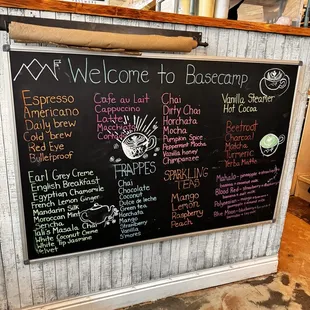 Welcome to Basecamp
Espresso
Americano
Daily brew
Cold brew
Red Eye
Bulletproof
Cafe au Lait
Cappuccino
Latte
Macchiato
Chai
Dirty Chai
Horchata
Mocha
Pumpkin Spice
Peppermint Mocha
Vanilla honey
Chimpanzee
Vanilla Steamer
Hot Cocoa
Beetroot
Charcoal
Matcha
Turmeric
Yerba Mate
Earl Grey Creme
English Breakfast
Egyptian Chamomile
French Lemon Ginger
Mandarin Silk
Moroccan Mint
Sencha
Tali's Masala Chai
White Coconut Creme
White Tip Jasmine
Velvet
FRAPPES
Chai
Chocolate
Coconut
Dulce de leche
Green tea
Horchata
Mango
Strawberry
Vanilla
S'mores
SPARKLING
TEAS
Mango
Lemon
Raspberry
Peach
Mahalo
Blood Red
Polynesian
Blue Moon